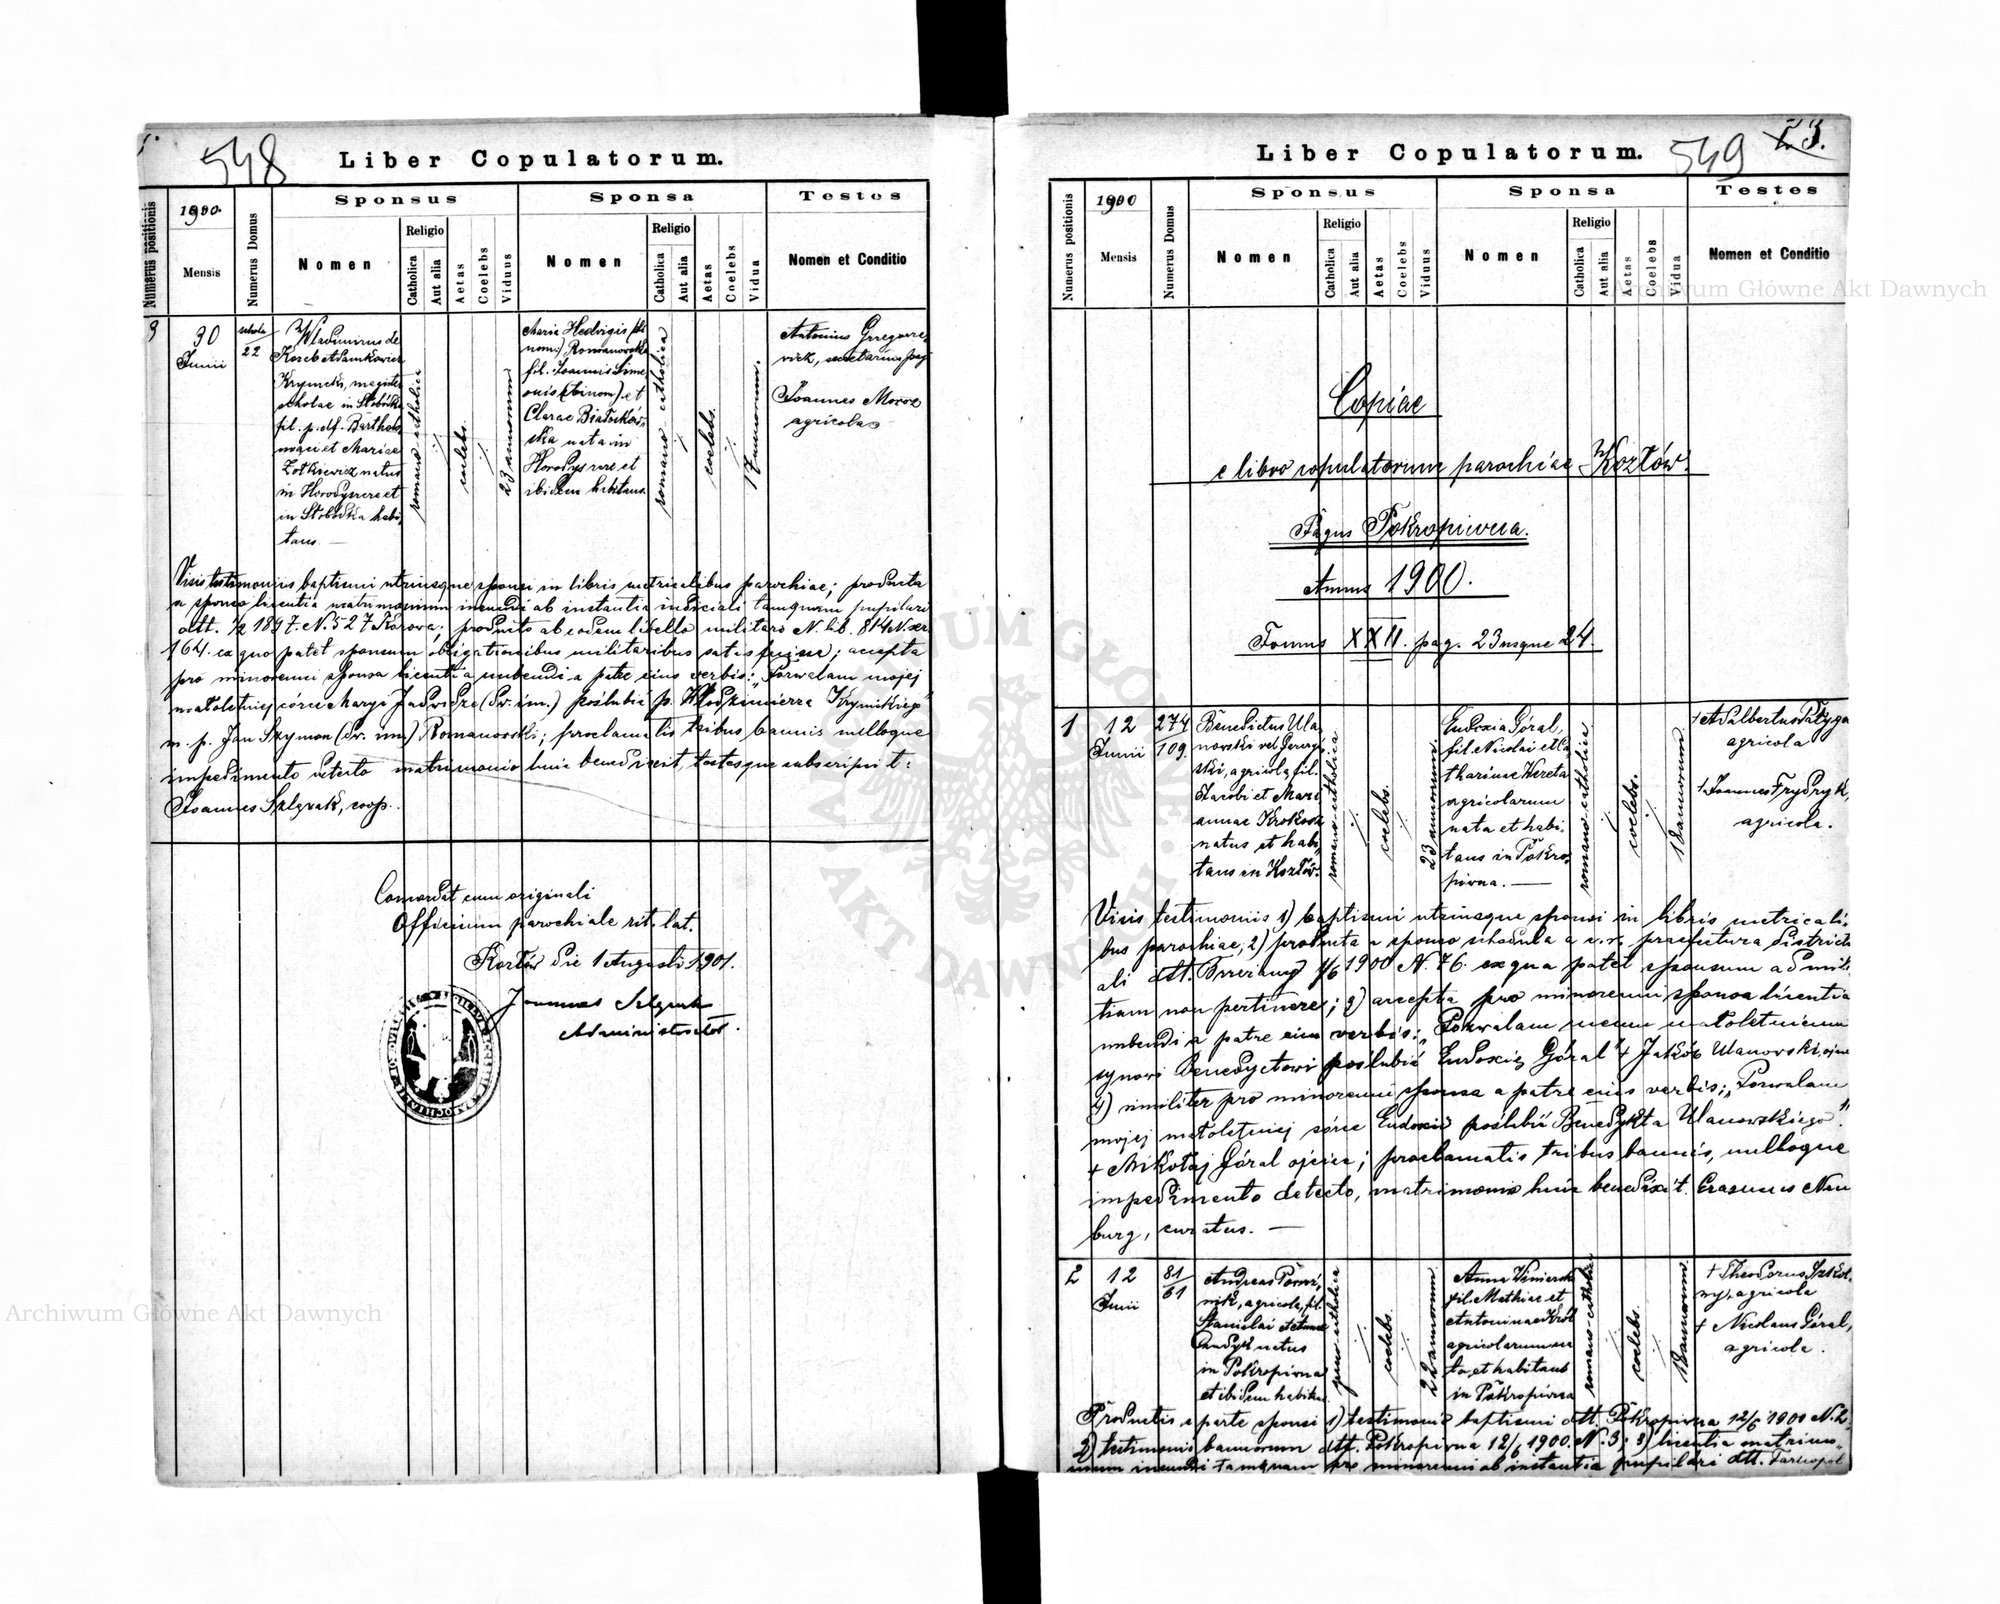 548
Liber Copulatorum.
Numerus positionis
1900.
Mensis
Numerus Domus
Sponsus
Nomen
Religio
Catholica
Aut alia
Aetas
Coelebs
Viduus
Sponsa
Nomen
Religio
Catholica
Aut alia
Aetas
Coelebs
Vidua
Testes
Nomen et Conditio
3
30
Junii
schola
22
Wladimirus de
Kozeb Adamkowicz
Krynicki, magister
scholae in Słobódka
fil. p. def. Bartho
maei et Mariae
Żółkiewicz natus
in Horodyszcze et
in Słobódka habi
tans —
romano catholica
coelebs.
23 annorum
Maria Hedvigis (bi
nom.) Romanovska
fil. Joannis Sime
onis (binom) et
Clarae Białoskór
ska nata in
Horodyszcze et
ibidem habitans.
romano catholica
coelebs.
17 annorum.
Antonius Grzegorze
wicz, secretarius pag.
Joannes Moroz
agricola
Visis testimoniis baptismi utriusque sponsi in libris metricalibus parochiae; producta
a sponso licentia matrimonium ineundi ab instantia judiciali tamquam pupilari
dtt. 1/2 1897. N. 527 Kozowa; producto ab eodem libello militari N. lib. 814 N. ser
164. ex quo patet sponsum obligationibus militaribus satisfecisse; accepta
pro minorenni sponsa licentia nubendi a patre eius verbis: „Pozwalam mojej
małoletniej córce Maryi Jadwidze (dw. im.) poślubić p. Włodzimierza Krynickiego"
m. p. Jan Szymon (dw. im.) Romanowski; proclamatis tribus bannis nulloque
impedimento detecto matrimonio huic benedixit, testesque subscripsit:
Joannes Szlgrak, coop.
Concordat cum originali
Officium parochiale rit. lat.
Kozłów die 1 Augusti 1901.
Joannes Szlgrak
Administrator.
549
23.
Liber Copulatorum.
Numerus positionis
1900
Mensis
Numerus Domus
Sponsus
Nomen
Religio
Catholica
Aut alia
Aetas
Coelebs
Viduus
Sponsa
Nomen
Religio
Catholica
Aut alia
Aetas
Coelebs
Vidua
Testes
Nomen et Conditio
Copiae
e libro copulatorum parochiae Kozłów.
Pagus Pokropiwna.
Annus 1900.
Tomus XXII. pag. 23 usque 24.
1
12
Junii
274
109.
Benedictus Ula
nowski vel Jerzy
ski, agricola, fil.
Jacobi et Mari
annae Krokosz
natus et habi
tans in Kozłów.
romano-catholica
coelebs.
23 annorum.
Eudoxia Góral,
fil. Nicolai et Ca
tharinae Wereta
agricolarum
nata et habi
tans in Pokro
piwna. —
romano-catholica
coelebs.
18 annorum
† Adalbertus Pałyga
agricola
† Joannes Frydryk,
agricola.
Visis testimoniis 1) baptismi utriusque sponsi in libris metricali-
bus parochiae, 2) producta a sponso schedula a c. r. praefectura district
ali dtt. Brzeżany 1/6 1900 N. 76. ex qua patet sponsum ad mili
tiam non pertinere; 3) accepta pro minorenni sponso licentia
nubendi a patre eius verbis: „Pozwalam memu małoletniemu
synowi Benedyctowi poślubić Eudoxię Góral" † Jakób Ulanowski, ojciec
4) similiter pro minorenni sponsa a patre eius verbis: „Pozwalam
mojej małoletniej córce Eudoxii poślubić Benedykta Ulanowskiego".
† Mikołaj Góral ojciec; proclamatis tribus bannis, nulloque
impedimento detecto, matrimonio huic benedixit. Erasmus Neu
burg, curatus. —
2
12
Junii
81
61
Andreas
nik, agricola, fil.
Stanislai et Annae
natus
in Pokropiwna
et ibidem habitans
romano catholica
coelebs.
22 annorum
Anna Winiarska
fil. Mathiae et
Antoninae Król
agricolarum na
ta et habitans
in Pokropiwna
romano-catholica
coelebs.
18 annorum
† Theodorus Szkol
ny, agricola
† Nicolaus Góral,
agricola.
Productis e parte sponsi 1) testimonio baptismi dtt. Pokropiwna 12/6 1900 N. 2
2) testimonio bannorum dtt. Pokropiwna 12/6 1900. N. 3; 3) licentia matrimo-
nium ineundi tamquam pro minorenni ab instantia pupilari dtt. Tarnopol
Archiwum Główne Akt Dawnych
Archiwum Główne Akt Dawnych
ARCHIWUM GŁÓWNE AKT DAWNYCH